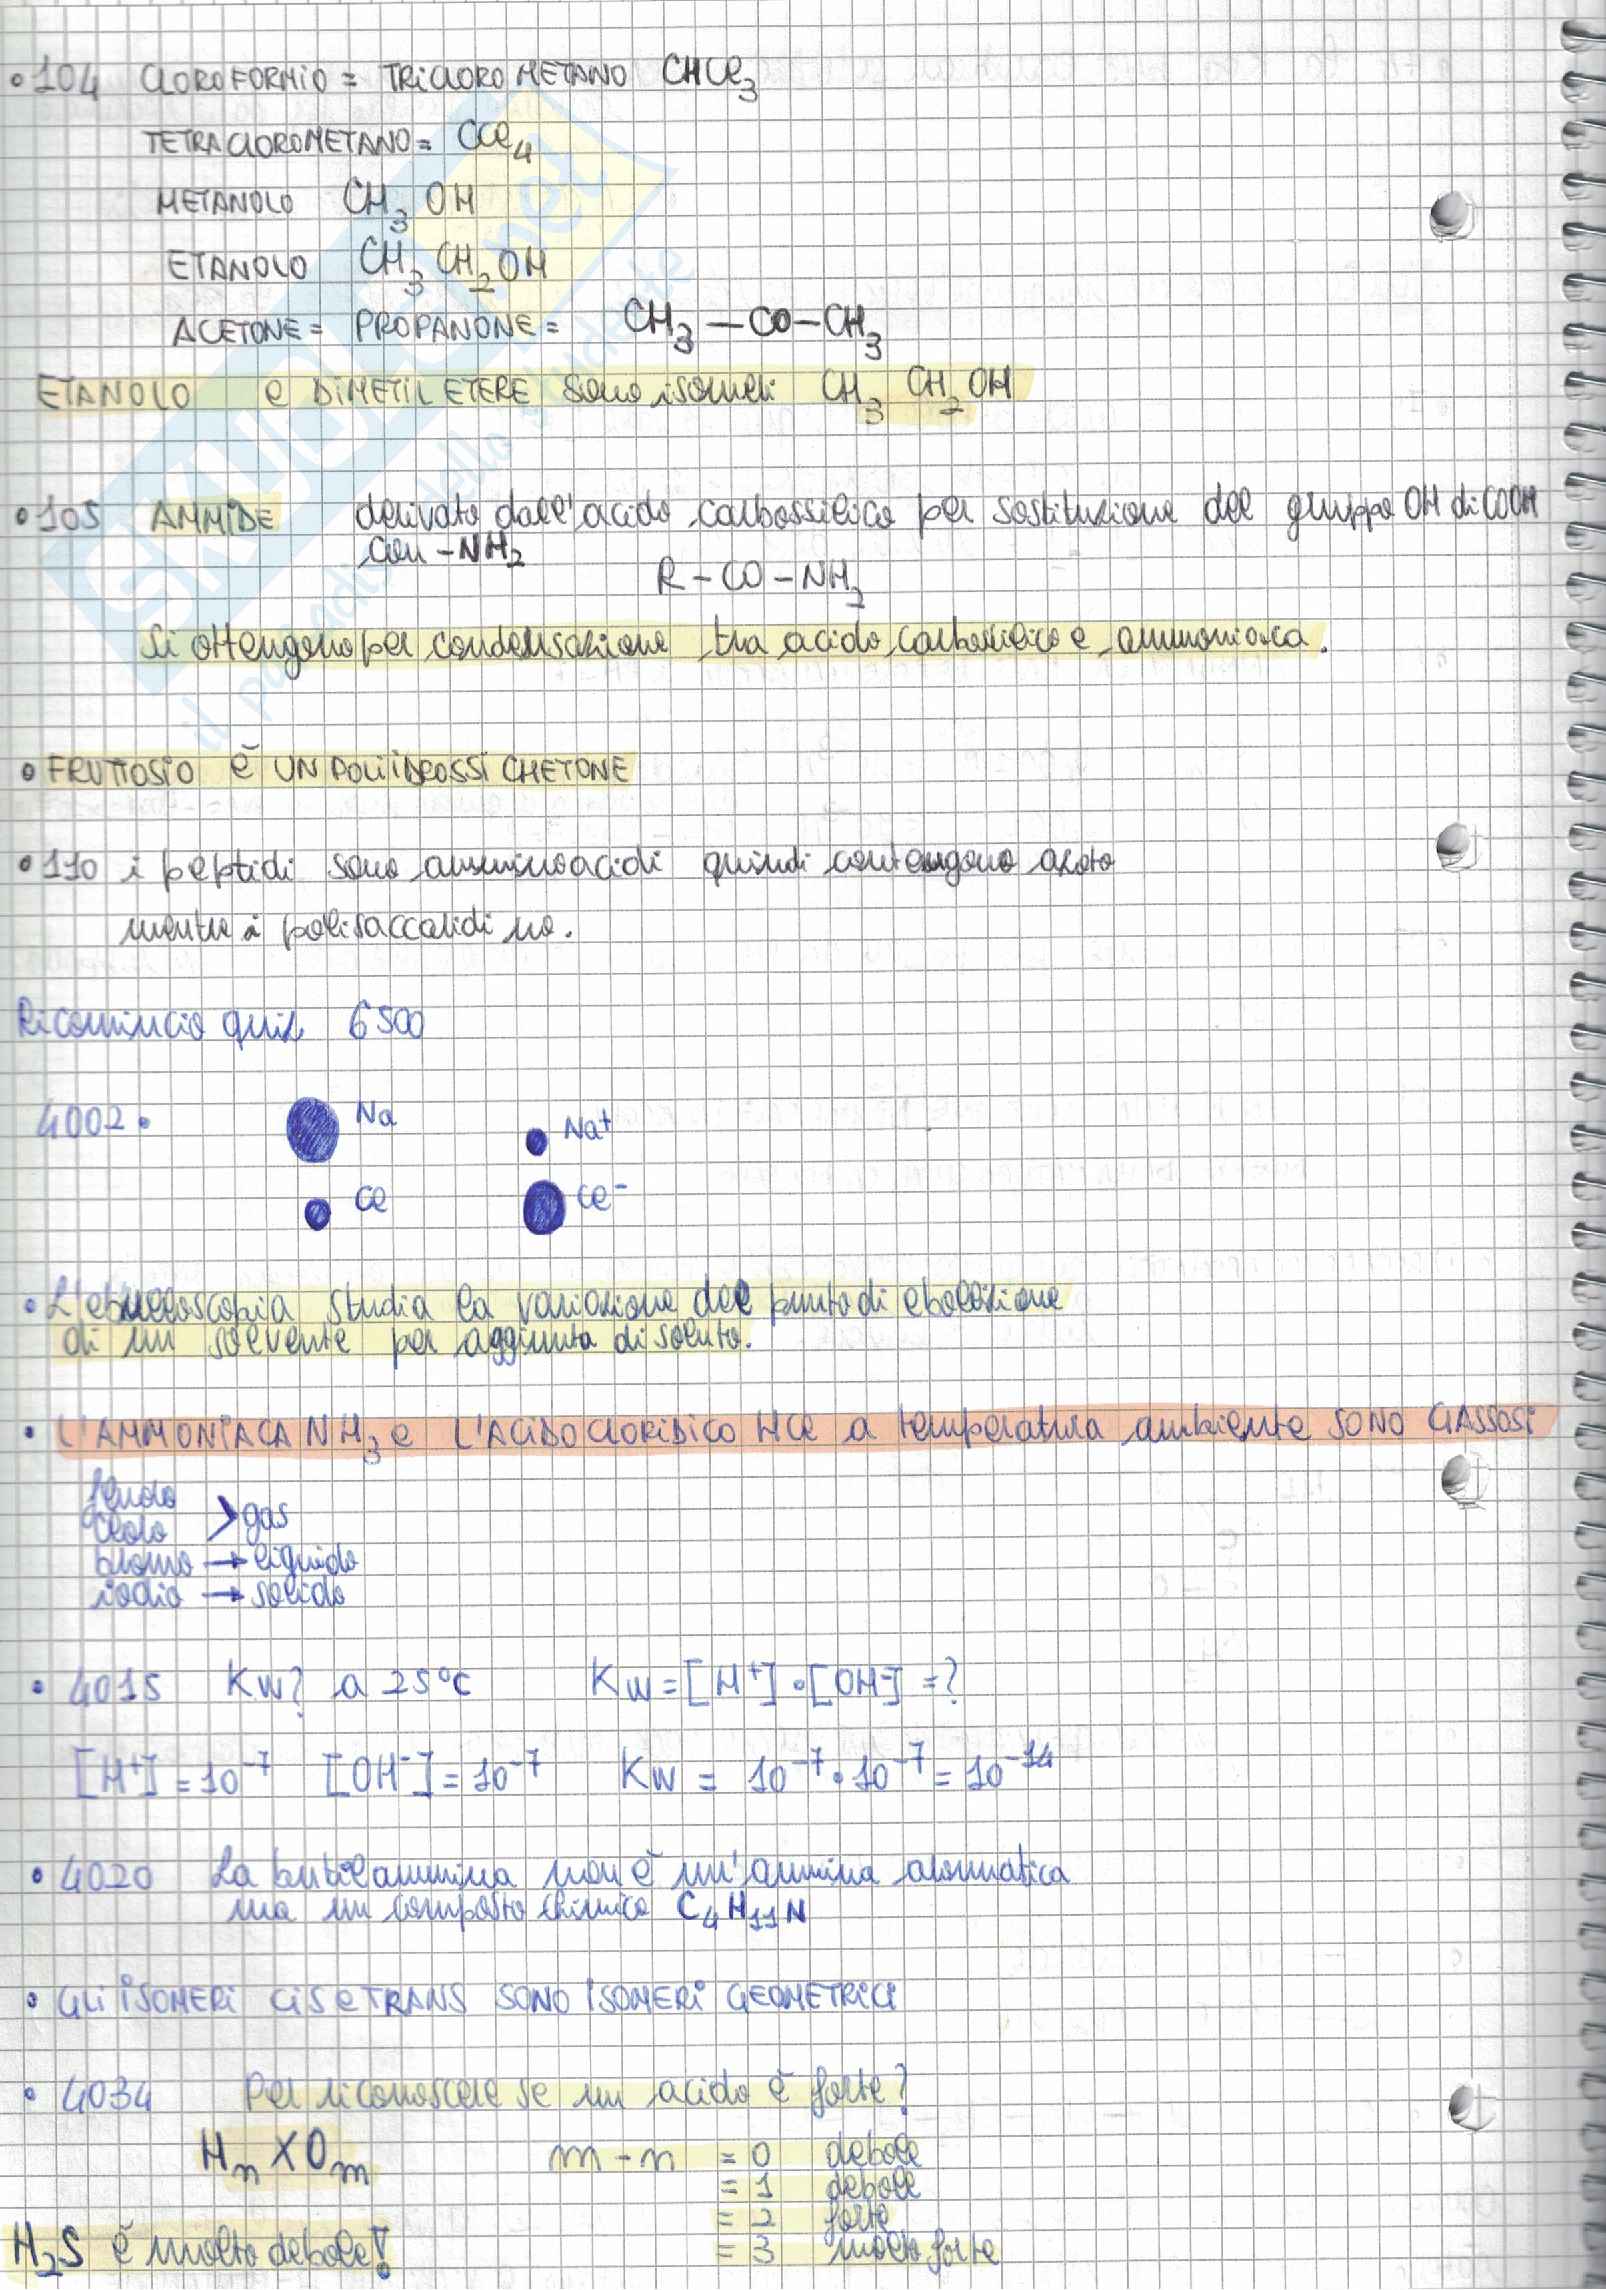 • 104 CLOROFORMIO = TRICLORO METANO CHCl3
TETRACLOROMETANO = CCl4
METANOLO CH3 OH
ETANOLO CH3 CH2 OH
ACETONE = PROPANONE = CH3 — CO — CH3
ETANOLO e DIMETIL ETERE sono isomeri CH3 CH2 OH
• 105 AMMIDE derivato dall'acido carbossilico per sostituzione del gruppo OH di COOH
con -NH2
R - CO - NH2
Si ottengono per condensazione tra acido carbossilico e ammoniaca.
• FRUTTOSIO È UN POLIIDROSSI CHETONE
• 110 i peptidi sono amminoacidi quindi contengono azoto
mentre i polisaccaridi no.
Ricomincio quiz 6500
4002 • Na Na+
Cl Cl-
• L'ebullioscopia studia la variazione del punto di ebollizione
di un solvente per aggiunta di soluto.
• L'AMMONIACA NH3 e L'ACIDO CLORIDICO HCl a temperatura ambiente SONO GASSOSI
fluoro
cloro > gas
bromo → liquido
iodio → solido
• 4015 KW? a 25°C KW = [H+] • [OH-] = ?
[H+] = 10-7 [OH-] = 10-7 KW = 10-7 • 10-7 = 10-14
• 4020 La butilammina non è un'ammina aromatica
ma un composto chimico C4H11N
• GLI ISOMERI CIS e TRANS SONO ISOMERI GEOMETRICI
• 4034 Per riconoscere se un acido è forte?
Hn XOm m - n = 0 debole
= 1 debole
= 2 forte
H2S è molto debole! = 3 molto forte
SKUOLA.net
il paradiso dello studente